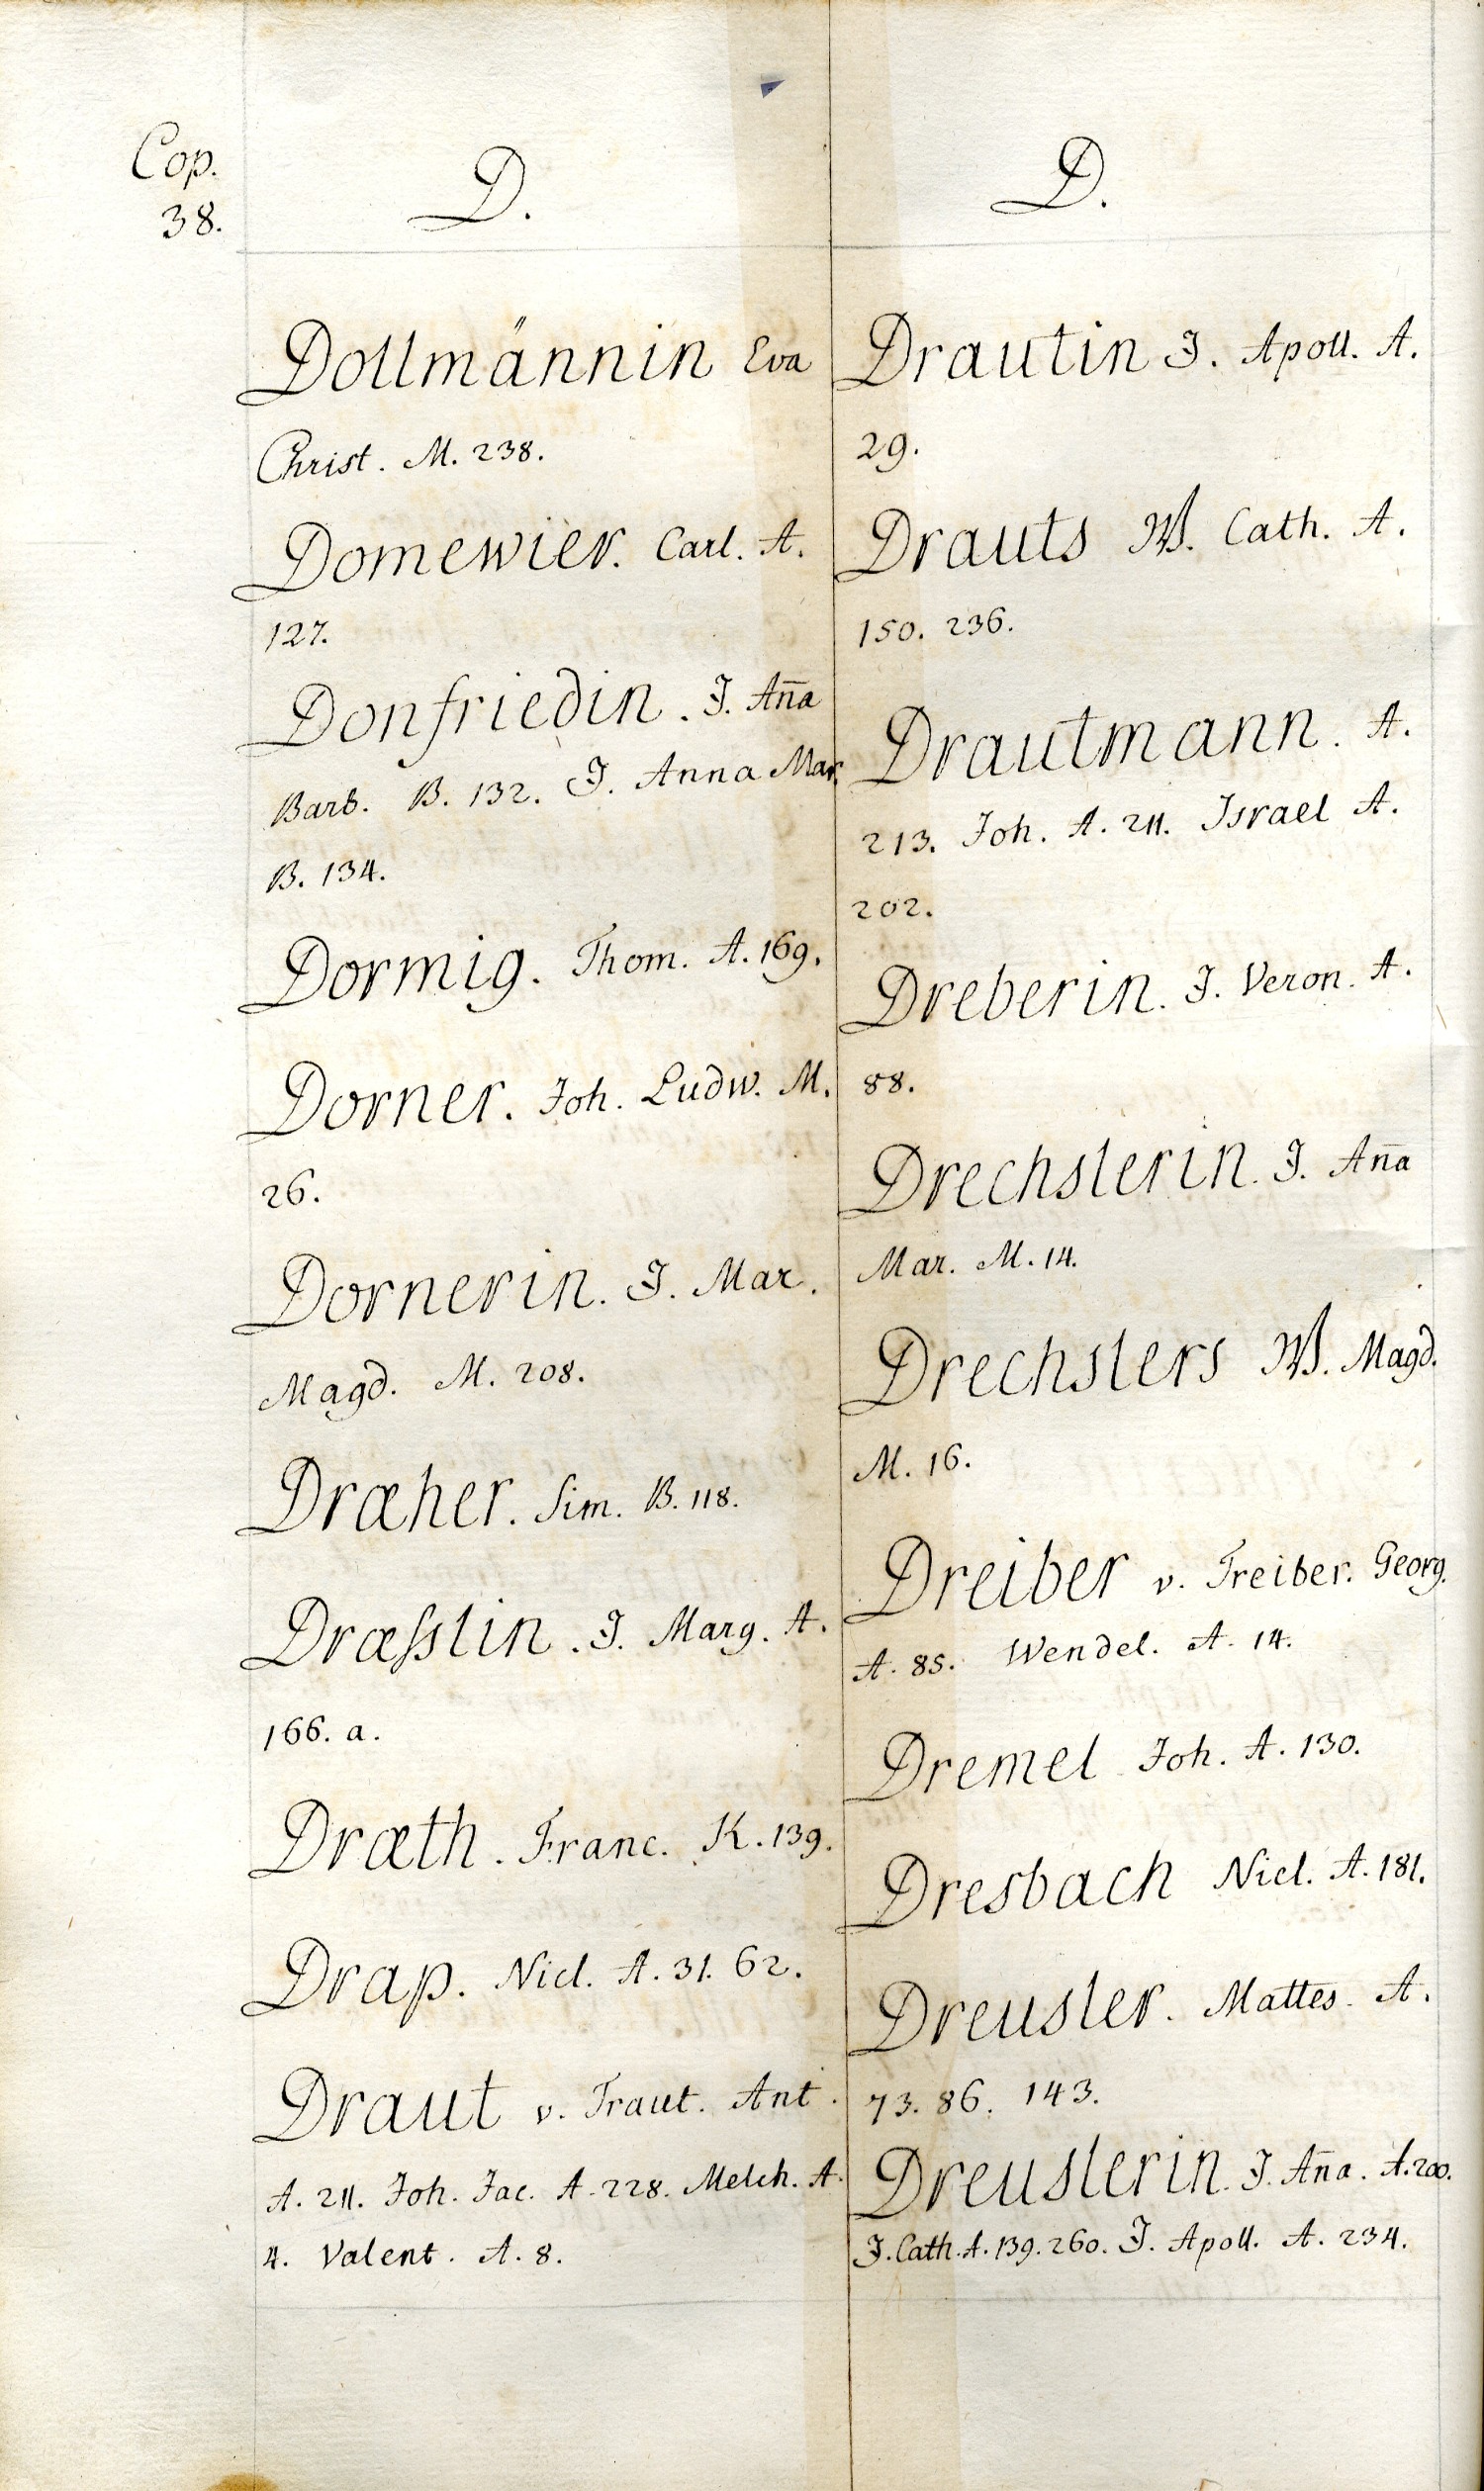 Cop.
38.
D.
Dollmännin Eva
Christ. M. 238.
Domewier. Carl. A.
127.
Donfriedin. J. Am̄a
Barb. B. 132. J. Anna Mar.
B. 134.
Dormig. Thom. A. 169.
Dorner. Joh. Ludw. M.
26.
Dornerin. J. Mar.
Magd. M. 208.
Dræher. Sim. B. 118.
Dræsslin. J. Marg. A.
166. a.
Dræth. Franc. K. 139.
Drap. Nicl. A. 31. 62.
Draut v. Traut. Ant.
A. 211. Joh. Jac. A. 228. Melch. A.
4. Valent. A. 8.
D.
Drautin J. Apoll. A.
29.
Drauts W. Cath. A.
150. 236.
Drautmann. A.
213. Joh. A. 211. Israel A.
202.
Dreberin. J. Veron. A.
88.
Drechslerin. J. An̄a
Mar. M. 14.
Drechslers W. Magd.
M. 16.
Dreiber v. Treiber. Georg.
A. 85. Wendel. A. 14.
Dremel Joh. A. 130.
Dresbach Nicl. A. 181.
Dreusler. Mattes. A.
73. 86. 143.
Dreuslerin. J. An̄a. A. 200.
J. Cath. A. 139. 260. J. Apoll. A. 234.